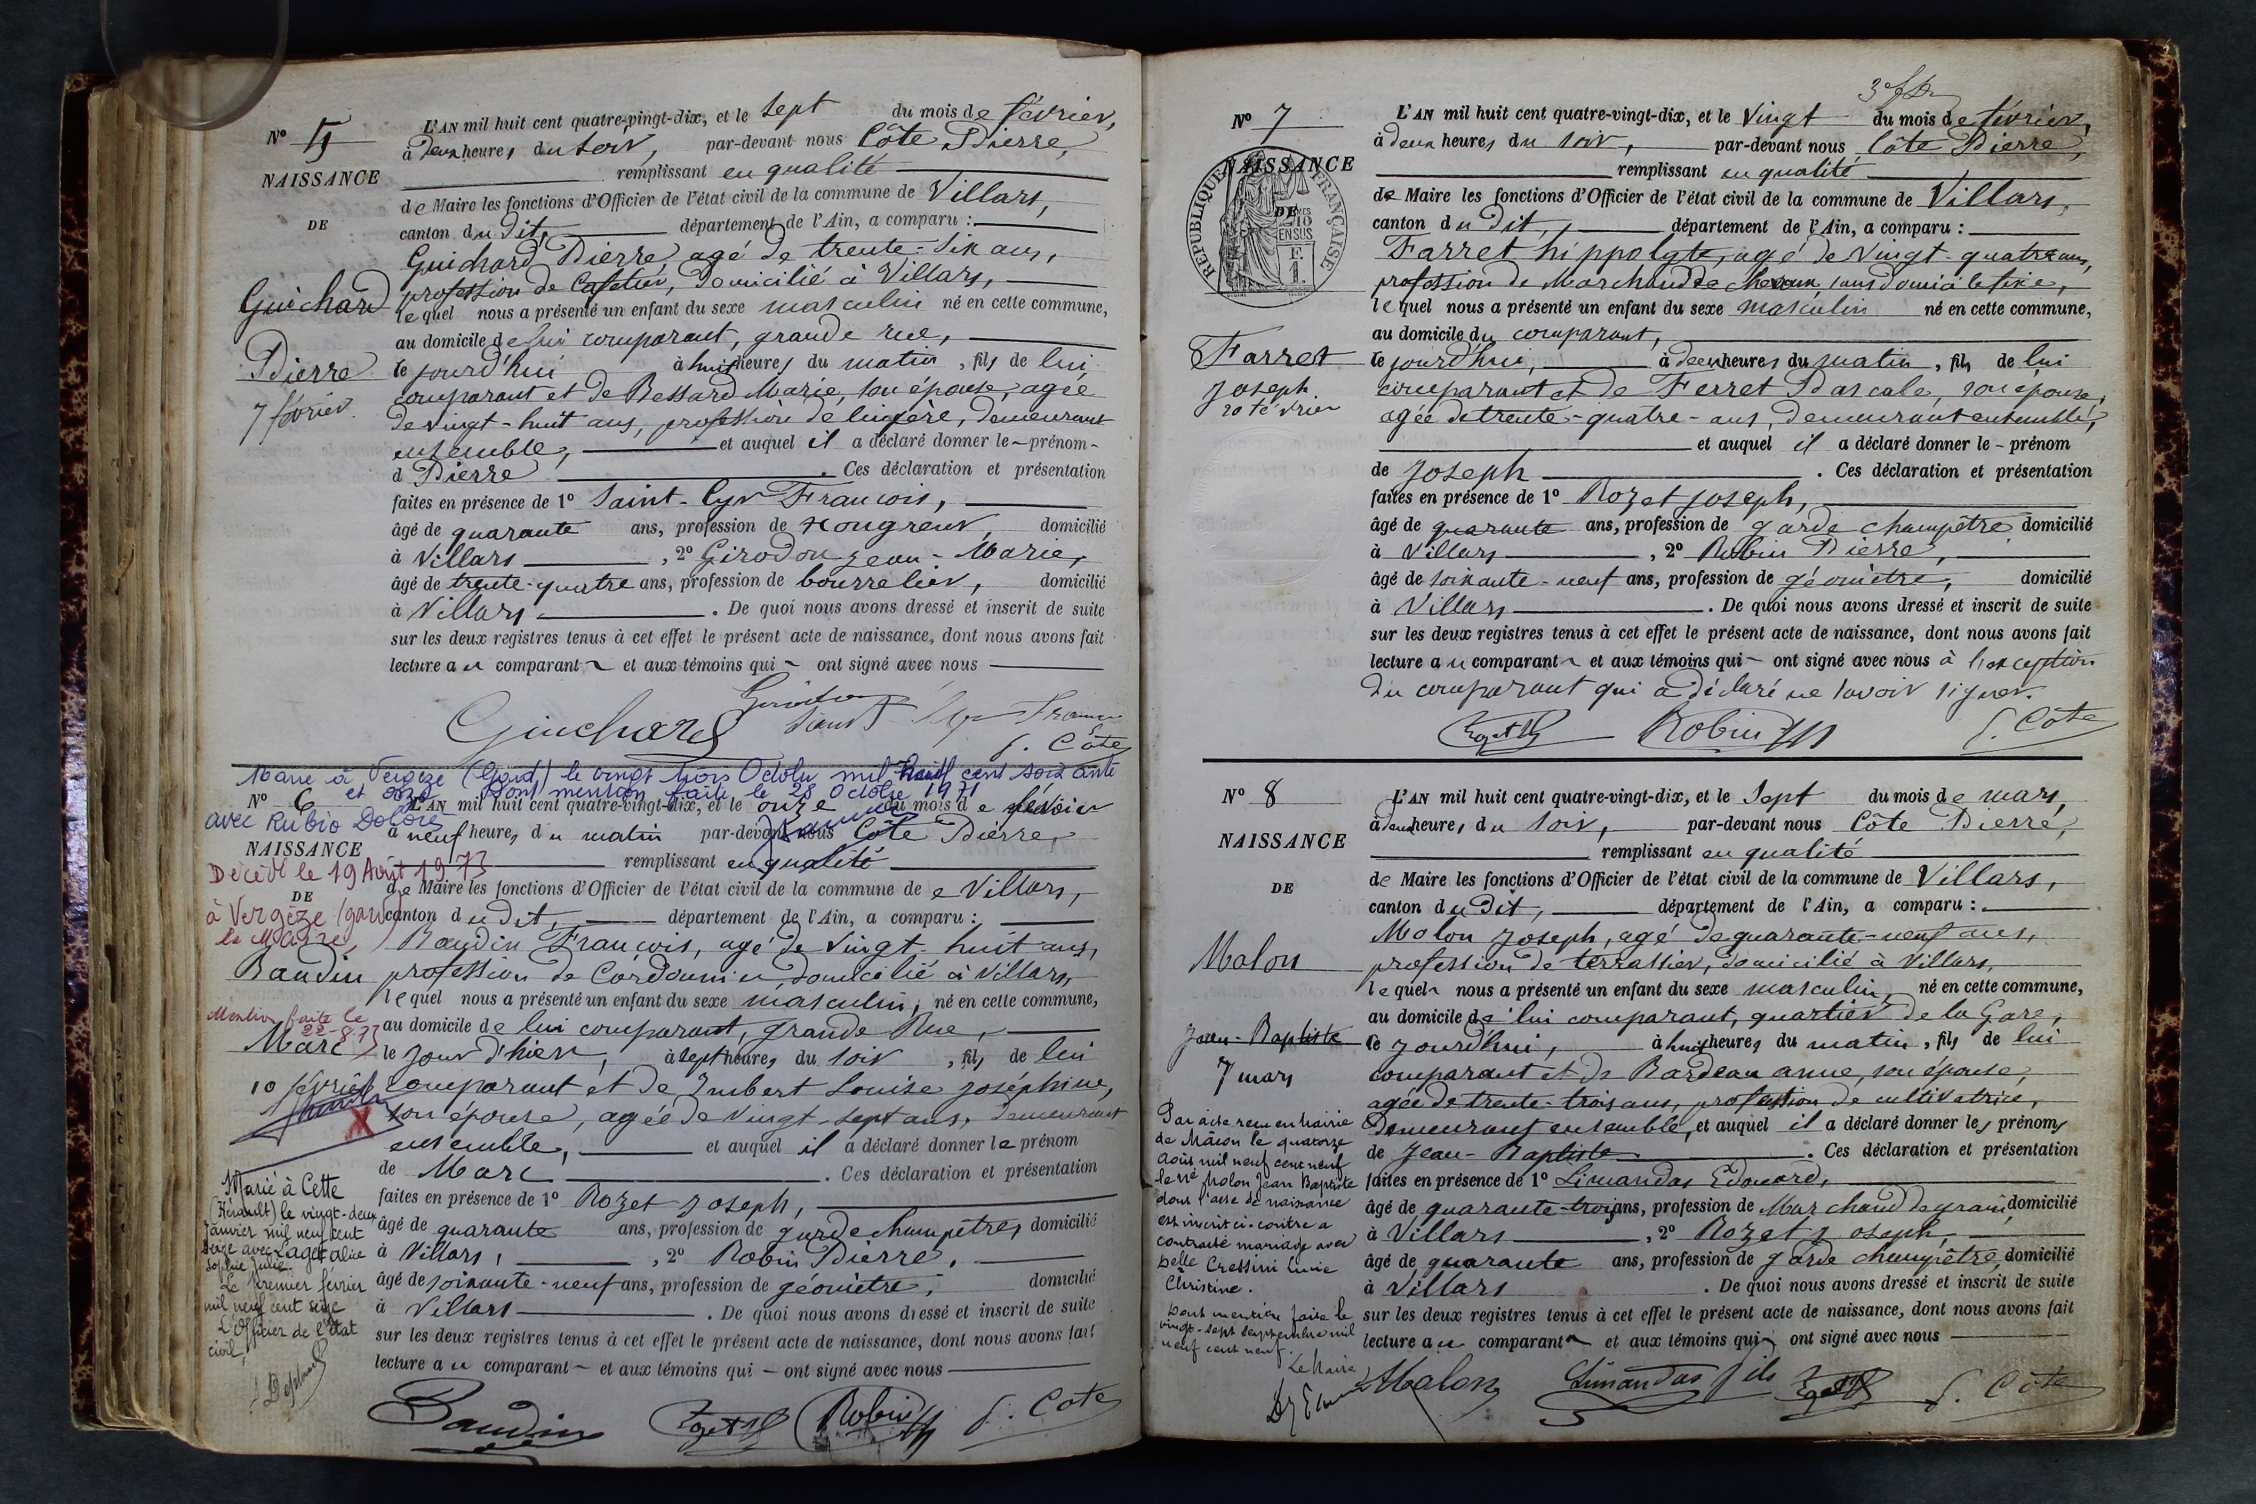 N° 5
NAISSANCE
DE
Guichard
Pierre
7 février
L'AN mil huit cent quatre-vingt-dix, et le sept du mois de février,
à deux heures du soir, par-devant nous Côte Pierre,
remplissant en qualité
de Maire les fonctions d'Officier de l'état civil de la commune de Villars,
canton dudit, département de l'Ain, a comparu :
Guichard Pierre agé de trente-six ans,
profession de Cafetier, domicilié à Villars,
lequel nous a présenté un enfant du sexe masculin né en cette commune,
au domicile de lui comparant, grande rue,
le jourd'hui à huit heures du matin, fils de lui
comparant et de Bessard Marie, son épouse, agée
de vingt-huit ans, profession de lingère, demeurant
ensemble, et auquel il a déclaré donner le prénom
d Pierre. Ces déclaration et présentation
faites en présence de 1° Saint-Cyr François,
âgé de quarante ans, profession de hongreur, domicilié
à Villars, 2° Girodon Jean-Marie,
âgé de trente-quatre ans, profession de bourrelier, domicilié
à Villars. De quoi nous avons dressé et inscrit de suite
sur les deux registres tenus à cet effet le présent acte de naissance, dont nous avons fait
lecture au comparant et aux témoins qui ont signé avec nous
Guichard Girodon Saint Cyr François
P. Côte
Marié à Vergèze (Gard) le vingt trois Octobre mil huit cent soixante
et onze Dont mention faite le 28 Octobre 1971
avec Rubio Dolorè
N° 6
NAISSANCE
Décédé le 19 Août 1973
DE
à Vergèze (gard)
le Maire,
Baudin
Mention faite le
22-8-73
Marc
10 février
X
Marié à Cette
(Hérault) le vingt-deux
Janvier mil neuf cent
seize avec Laget Alice
Sophie Julie.
Le premier février
mil neuf cent seize
L'Officier de l'état
civil,
L'AN mil huit cent quatre-vingt-dix, et le onze du mois de février
à neuf heures du matin par-devant nous Côte Pierre,
remplissant en qualité
de Maire les fonctions d'Officier de l'état civil de la commune de e Villars,
canton dudit, département de l'Ain, a comparu :
Baudin François, agé de vingt-huit ans,
profession de Cordonnier, domicilié à Villars,
lequel nous a présenté un enfant du sexe masculin, né en cette commune,
au domicile de lui comparant, grande Rue,
le jour d'hier, à sept heures du soir, fils de lui
comparant et de Imbert Louise Joséphine,
son épouse, agée de vingt-sept ans, demeurant
ensemble, et auquel il a déclaré donner le prénom
de Marc. Ces déclaration et présentation
faites en présence de 1° Rozet Joseph,
âgé de quarante ans, profession de garde champêtre, domicilié
à Villars, 2° Robin Pierre,
âgé de soixante-neuf ans, profession de géomètre, domicilié
à Villars. De quoi nous avons dressé et inscrit de suite
sur les deux registres tenus à cet effet le présent acte de naissance, dont nous avons fait
lecture au comparant et aux témoins qui ont signé avec nous
Baudin Rozet Robin P. Côte
N° 7
NAISSANCE
DE
RÉPUBLIQUE FRANÇAISE
Farret
Joseph
20 février
L'AN mil huit cent quatre-vingt-dix, et le vingt du mois de février,
à deux heures du soir, par-devant nous Côte Pierre,
remplissant en qualité
de Maire les fonctions d'Officier de l'état civil de la commune de Villars,
canton dudit, département de l'Ain, a comparu :
Farret hippolyte, agé de vingt-quatre ans,
profession de Marchand de chevaux, sans domicile fixe,
lequel nous a présenté un enfant du sexe masculin né en cette commune,
au domicile du comparant,
le jourd'hui, à deux heures du matin, fils de lui
comparant et de Ferret Pascale, son épouse,
agée de trente-quatre-ans, demeurant ensemble,
et auquel il a déclaré donner le prénom
de Joseph. Ces déclaration et présentation
faites en présence de 1° Rozet Joseph,
âgé de quarante ans, profession de garde champêtre domicilié
à Villars, 2° Robin Pierre,
âgé de soixante-neuf ans, profession de géomètre, domicilié
à Villars. De quoi nous avons dressé et inscrit de suite
sur les deux registres tenus à cet effet le présent acte de naissance, dont nous avons fait
lecture au comparant et aux témoins qui ont signé avec nous à l'exception
du comparant qui a déclaré ne savoir signer.
Rozet Robin P. Côte
N° 8
NAISSANCE
DE
Molon
Jean-Baptiste
7 mars
Par acte reçu en mairie
de Mâcon le quatorze
août mil neuf cent neuf
le né Molon Jean Baptiste
dont l'acte de naissance
est inscrit ci-contre a
contracté mariage avec
delle Cressini Lucie
Christine.
Dont mention faite le
vingt-sept septembre mil
neuf cent neuf.
Le Maire
L'AN mil huit cent quatre-vingt-dix, et le sept du mois de mars,
à deux heures du soir, par-devant nous Côte Pierre,
remplissant en qualité
de Maire les fonctions d'Officier de l'état civil de la commune de Villars,
canton dudit, département de l'Ain, a comparu :
Molon Joseph, agé de quarante-neuf ans,
profession de terrassier, domicilié à Villars,
lequel nous a présenté un enfant du sexe masculin, né en cette commune,
au domicile de lui comparant, quartier de la Gare,
le jourd'hui, à huit heures du matin, fils de lui
comparant et de Bardeau anne, son épouse,
agée de trente-trois ans, profession de cultivatrice,
demeurant ensemble, et auquel il a déclaré donner les prénoms
de Jean-Baptiste. Ces déclaration et présentation
faites en présence de 1° Limandas Edouard,
âgé de quarante-trois ans, profession de Marchand de grain, domicilié
à Villars, 2° Rozet Joseph,
âgé de quarante ans, profession de garde champêtre, domicilié
à Villars. De quoi nous avons dressé et inscrit de suite
sur les deux registres tenus à cet effet le présent acte de naissance, dont nous avons fait
lecture au comparant et aux témoins qui ont signé avec nous
Molon Limandas fils Rozet P. Côte